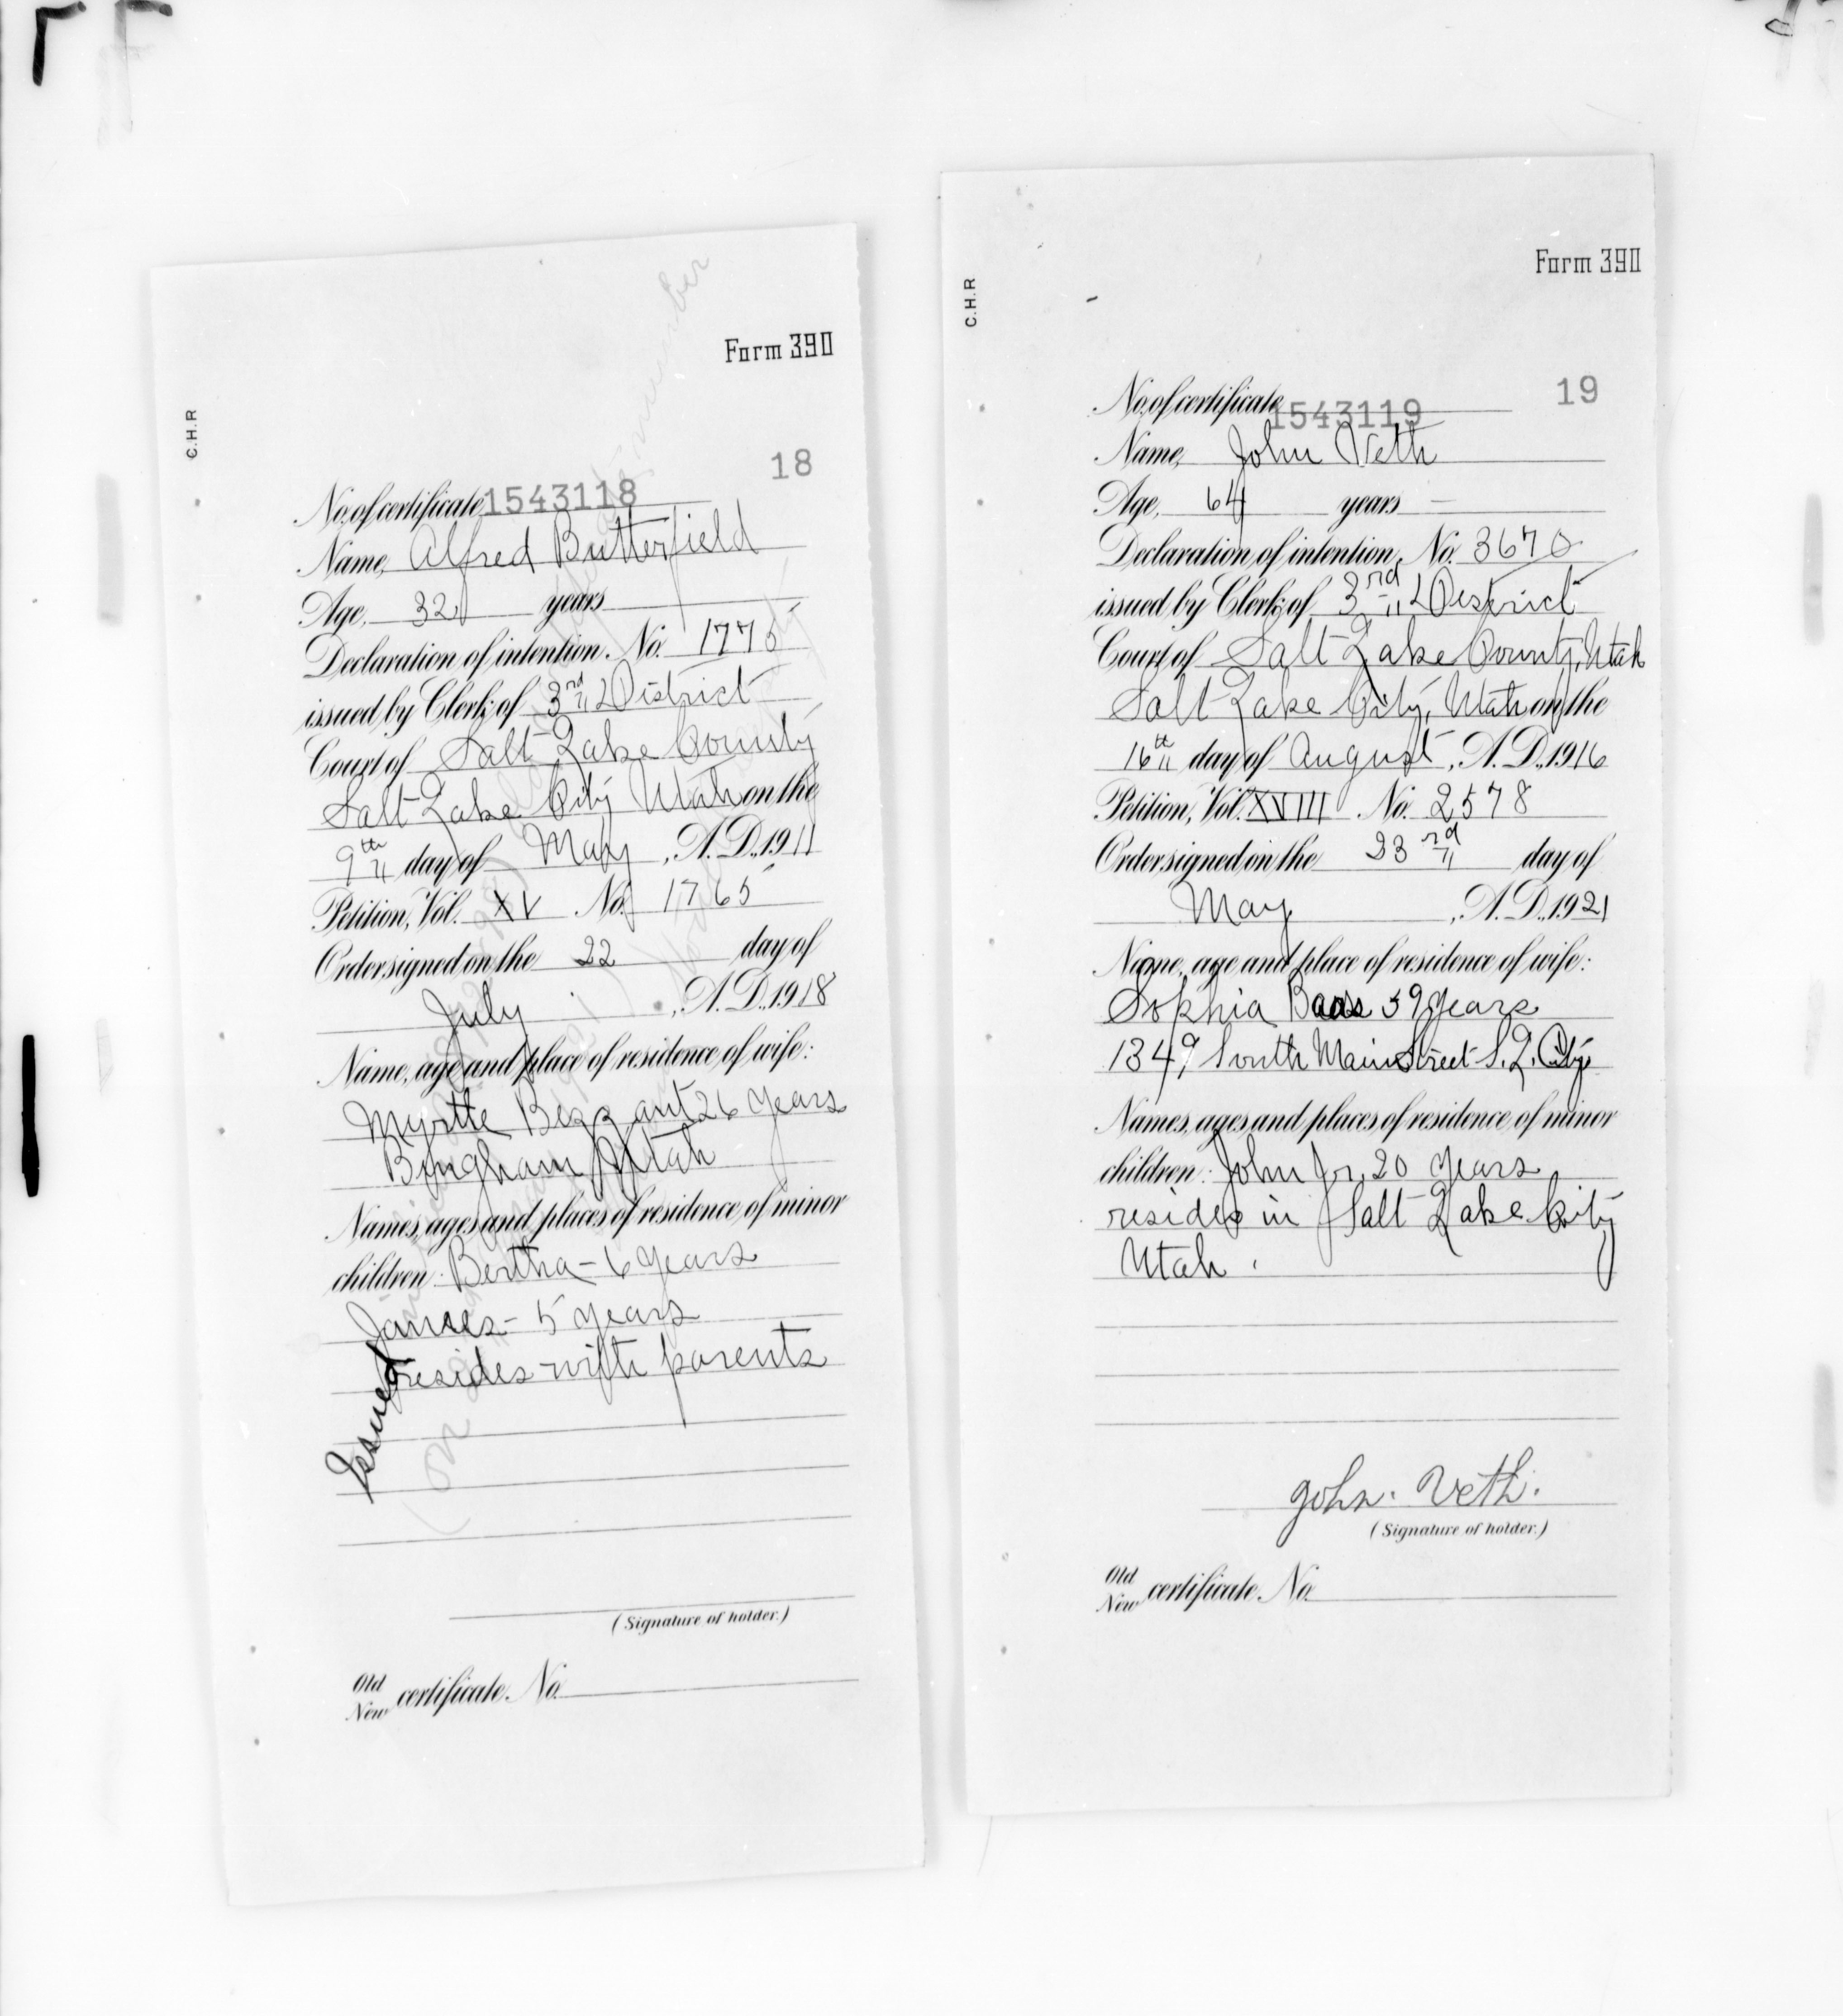 Form 390
C.H.R
18
No. of certificate 1543118
Name, Alfred Butterfield
Age, 32 years
Declaration of intention, No. 1775
issued by Clerk of 3rd District
Court of Salt Lake County
Salt Lake City Utah on the
9th day of May, A.D. 1911
Petition, Vol. XV No. 1765
Order signed on the 22 day of
July, A.D. 1918
Name, age and place of residence of wife:
Myrtle 26 years
Bingham Utah
Names, ages and places of residence of minor
children: Bertha - 6 years
James - 5 years
resides with parents
Issued
(Signature of holder.)
Old
New certificate No.
Form 390
C.H.R
19
No. of certificate 1543119
Name, John Veth
Age, 64 years —
Declaration of intention, No. 3670
issued by Clerk of 3rd District
Court of Salt Lake County, Utah
Salt Lake City, Utah on the
16th day of August, A.D. 1916
Petition, Vol. XVIII No. 2578
Order signed on the 23rd day of
May, A.D. 1921
Name, age and place of residence of wife:
Sophia Baas 59 years
1349 South Main Street S. L. City
Names, ages and places of residence of minor
children: John Jr. 20 years
resides in Salt Lake City
Utah.
John. Veth.
(Signature of holder.)
Old
New certificate No.